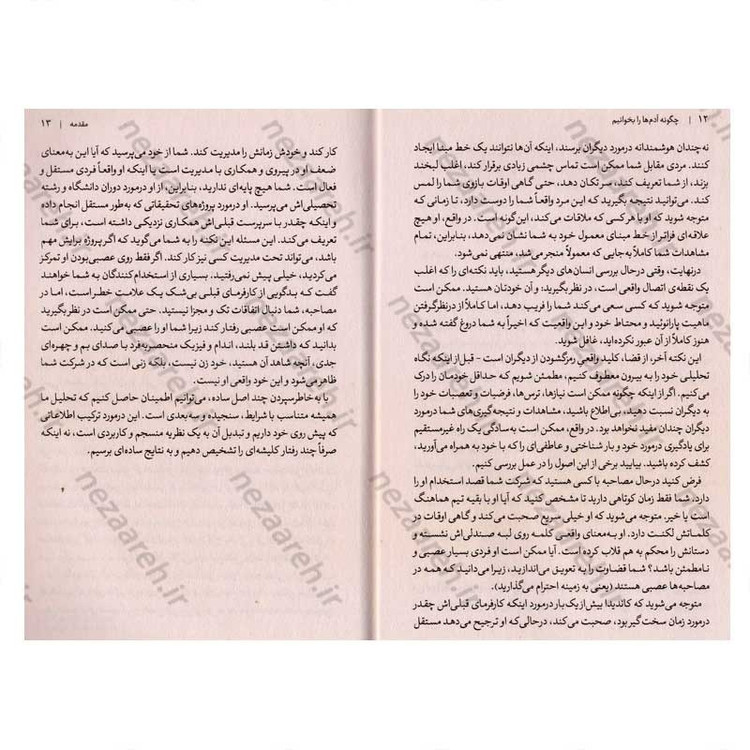 ۱۲ | چگونه آدم‌ها را بخوانیم
نه چندان هوشمندانه درمورد دیگران برسند، اینکه آن‌ها نتوانند یک خط مبنا ایجاد
کنند. مردی مقابل شما ممکن است تماس چشمی زیادی برقرار کند، اغلب لبخند
بزند، از شما تعریف کند، سر تکان دهد، حتی گاهی اوقات بازوی شما را لمس
کند. می‌توانید نتیجه بگیرید که این مرد واقعاً شما را دوست دارد، تا زمانی که
متوجه شوید که او با هر کسی که ملاقات می‌کند، این‌گونه است. در واقع، او هیچ
علاقه‌ای فراتر از خط مبنای معمول خود به شما نشان نمی‌دهد، بنابراین، تمام
مشاهدات شما کاملاً به جایی که معمولاً منجر می‌شد، منتهی نمی‌شود.
درنهایت، وقتی درحال بررسی انسان‌های دیگر هستید، باید نکته‌ای را که اغلب
یک نقطه‌ی اتصال واقعی است، در نظر بگیرید: و آن خودتان هستید. ممکن است
متوجه شوید که کسی سعی می‌کند شما را فریب دهد، اما کاملاً از درنظرگرفتن
ماهیت پارانوئید و محتاط خود و این واقعیت که اخیراً به شما دروغ گفته شده و
هنوز کاملاً از آن عبور نکرده‌اید، غافل شوید.
این نکته آخر، از قضا، کلید واقعی رمزگشودن از دیگران است - قبل از اینکه نگاه
تحلیلی خود را به بیرون معطوف کنیم، مطمئن شویم که حداقل خودمان را درک
می‌کنیم. اگر از اینکه چگونه ممکن است نیازها، ترس‌ها، فرضیات و تعصبات خود را
به دیگران نسبت دهید، بی‌اطلاع باشید، مشاهدات و نتیجه‌گیری‌های شما درمورد
دیگران چندان مفید نخواهد بود. در واقع، ممکن است به‌سادگی یک راه غیرمستقیم
برای یادگیری درمورد خود و بار شناختی و عاطفی‌ای را که با خود به همراه می‌آورید،
کشف کرده باشید. بیایید برخی از این اصول را در عمل بررسی کنیم.
فرض کنید درحال مصاحبه با کسی هستید که شرکت شما قصد استخدام او را
دارد. شما فقط زمان کوتاهی دارید تا مشخص کنید که آیا او با بقیه تیم هماهنگ
است یا خیر. متوجه می‌شوید که او خیلی سریع صحبت می‌کند و گاهی اوقات در
کلماتش لکنت دارد. او به‌معنای واقعی کلمه روی لبه صندلی‌اش نشسته و
دستانش را محکم به هم قلاب کرده است. آیا ممکن است او فردی بسیار عصبی و
نامطمئن باشد؟ شما قضاوت را به تعویق می‌اندازید، زیرا می‌دانید که همه در
مصاحبه‌ها عصبی هستند (یعنی به زمینه احترام می‌گذارید).
متوجه می‌شوید که کاندیدا بیش از یک بار درمورد اینکه کارفرمای قبلی‌اش چقدر
درمورد زمان سخت‌گیر بود، صحبت می‌کند، درحالی‌که او ترجیح می‌دهد مستقل
مقدمه | ۱۳
کار کند و خودش زمانش را مدیریت کند. شما از خود می‌پرسید که آیا این به‌معنای
ضعف او در پیروی و همکاری با مدیریت است یا اینکه او واقعاً فردی مستقل و
فعال است. شما هیچ پایه‌ای ندارید، بنابراین، از او درمورد دوران دانشگاه و رشته
تحصیلی‌اش می‌پرسید. او درمورد پروژه‌های تحقیقاتی که به‌طور مستقل انجام داده
و اینکه چقدر با سرپرست قبلی‌اش همکاری نزدیکی داشته است، برای شما
تعریف می‌کند. این مسئله این نکته را به شما می‌گوید که اگر پروژه برایش مهم
باشد، می‌تواند تحت مدیریت کسی نیز کار کند. اگر فقط روی عصبی‌بودن او تمرکز
می‌کردید، خیلی پیش نمی‌رفتید. بسیاری از استخدام‌کنندگان به شما خواهند
گفت که بدگویی از کارفرمای قبلی بی‌شک یک علامت خطر است، اما در
مصاحبه، شما دنبال اتفاقات تک و مجزا نیستید. حتی ممکن است در نظر بگیرید
که او ممکن است عصبی رفتار کند زیرا شما او را عصبی می‌کنید. ممکن است
این واقعیت باشد که داشتن قد بلند، اندام و فیزیک منحصربه‌فرد با صدای بم و چهره‌ای
جدی، آنچه شاهد آن هستید، خود زن نیست، بلکه زنی است که در شرکت شما
ظاهر می‌شود و این خود واقعی او نیست.
با به خاطرسپردن چند اصل ساده، می‌توانیم اطمینان حاصل کنیم که تحلیل ما
همیشه متناسب با شرایط، سنجیده و سه‌بعدی است. این درمورد ترکیب اطلاعاتی
که پیش روی خود داریم و تبدیل آن به یک نظریه منسجم و کاربردی است، نه اینکه
صرفاً چند رفتار کلیشه‌ای را تشخیص دهیم و به نتایج ساده‌ای برسیم.
nezaareh.ir